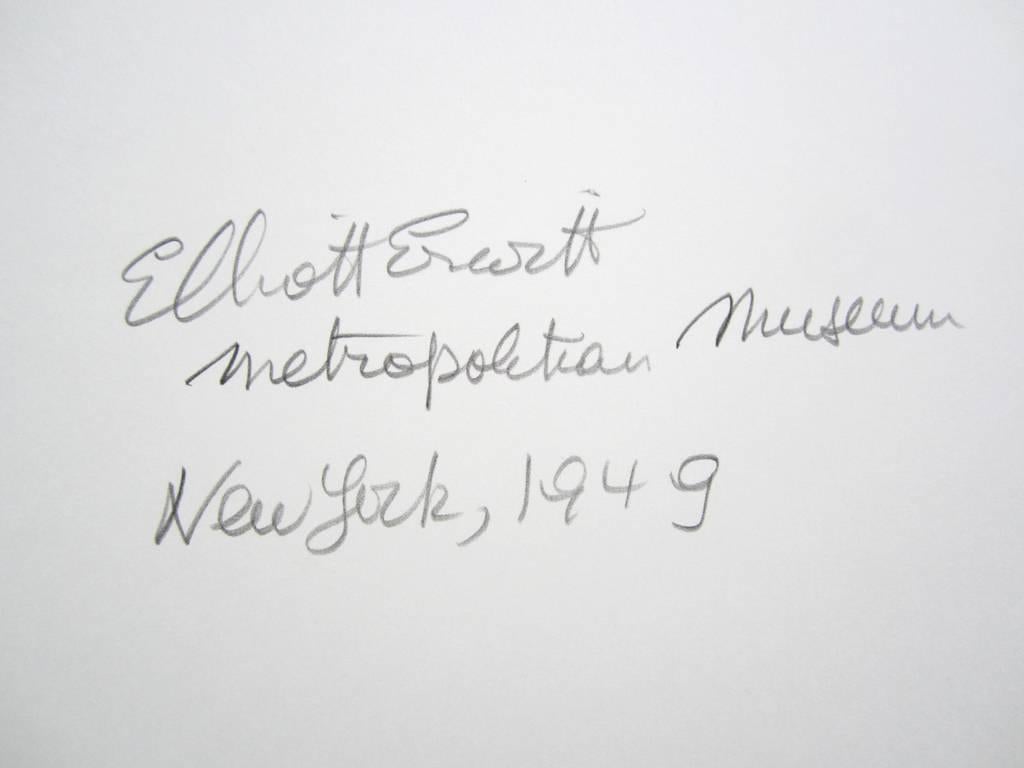 Elliott Erwitt
Metropolitan Museum
New York, 1949